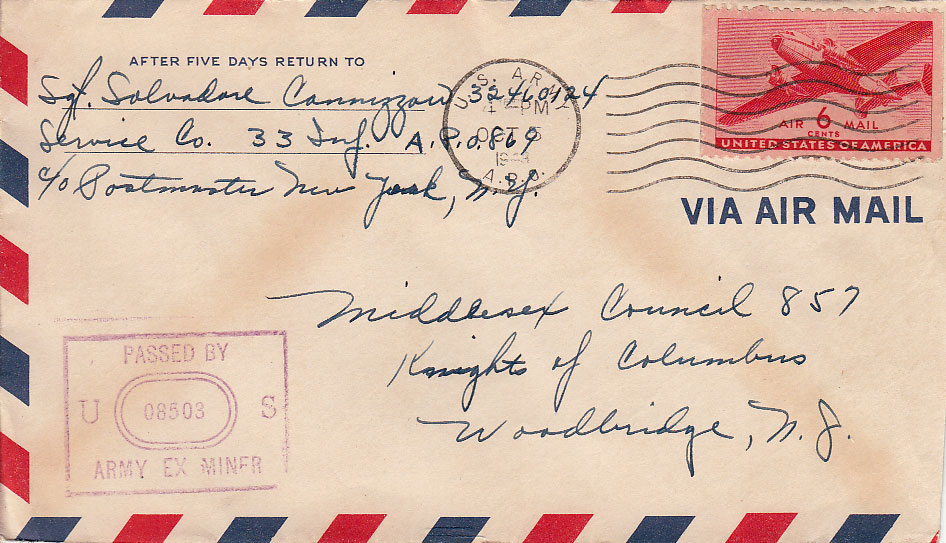 AFTER FIVE DAYS RETURN TO
Sgt. Salvadore Cannizzaro 32460124
Service Co. 33 Inf. A.P.O. 869
c/o Postmaster New York, N.Y.
U.S. ARMY
PM
OCT
A.P.O.
AIR 6 MAIL
CENTS
UNITED STATES OF AMERICA
VIA AIR MAIL
Middlesex Council 857
Knights of Columbus
Woodbridge, N.J.
PASSED BY
U 08503 S
ARMY EX MINER